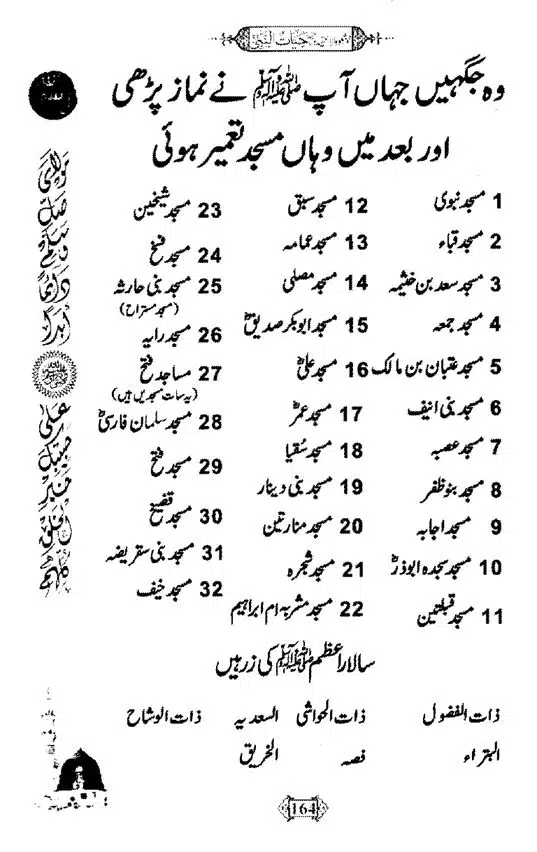 حیات النبی
وہ جگہیں جہاں آپ ﷺ نے نماز پڑھی
اور بعد میں وہاں مسجد تعمیر ہوئی
1 مسجد نبوی
2 مسجد قباء
3 مسجد سعد بن خثیمہ
4 مسجد جمعہ
5 مسجد عتبان بن مالک
6 مسجد بنی انیف
7 مسجد عصبہ
8 مسجد بنو ظفر
9 مسجد اجابہ
10 مسجد سجدہ ابوذرؓ
11 مسجد قبلتین
12 مسجد سبق
13 مسجد عمامہ
14 مسجد مصلی
15 مسجد ابوبکر صدیقؓ
16 مسجد علیؓ
17 مسجد عمرؓ
18 مسجد سُقیا
19 مسجد بنی دینار
20 مسجد منارتین
21 مسجد شجرہ
22 مسجد مشربہ ام ابراہیم
23 مسجد شیخین
24 مسجد فسح
25 مسجد بنی حارثہ
(مسجد مستراح)
26 مسجد رایہ
27 مساجد فتح
(یہ سات مسجدیں ہیں)
28 مسجد سلمان فارسیؓ
29 مسجد فتح
30 مسجد فضیح
31 مسجد بنی سقریضہ
32 مسجد خیف
سالار اعظم ﷺ کی زرہیں
ذات الفضول ذات الحواشی السعدیہ ذات الوشاح
البتراء فصہ الخریق
164
مولای
صل
وسلم
دائما
ابدا
علی
حبیبک
خیر
الخلق
کلہم